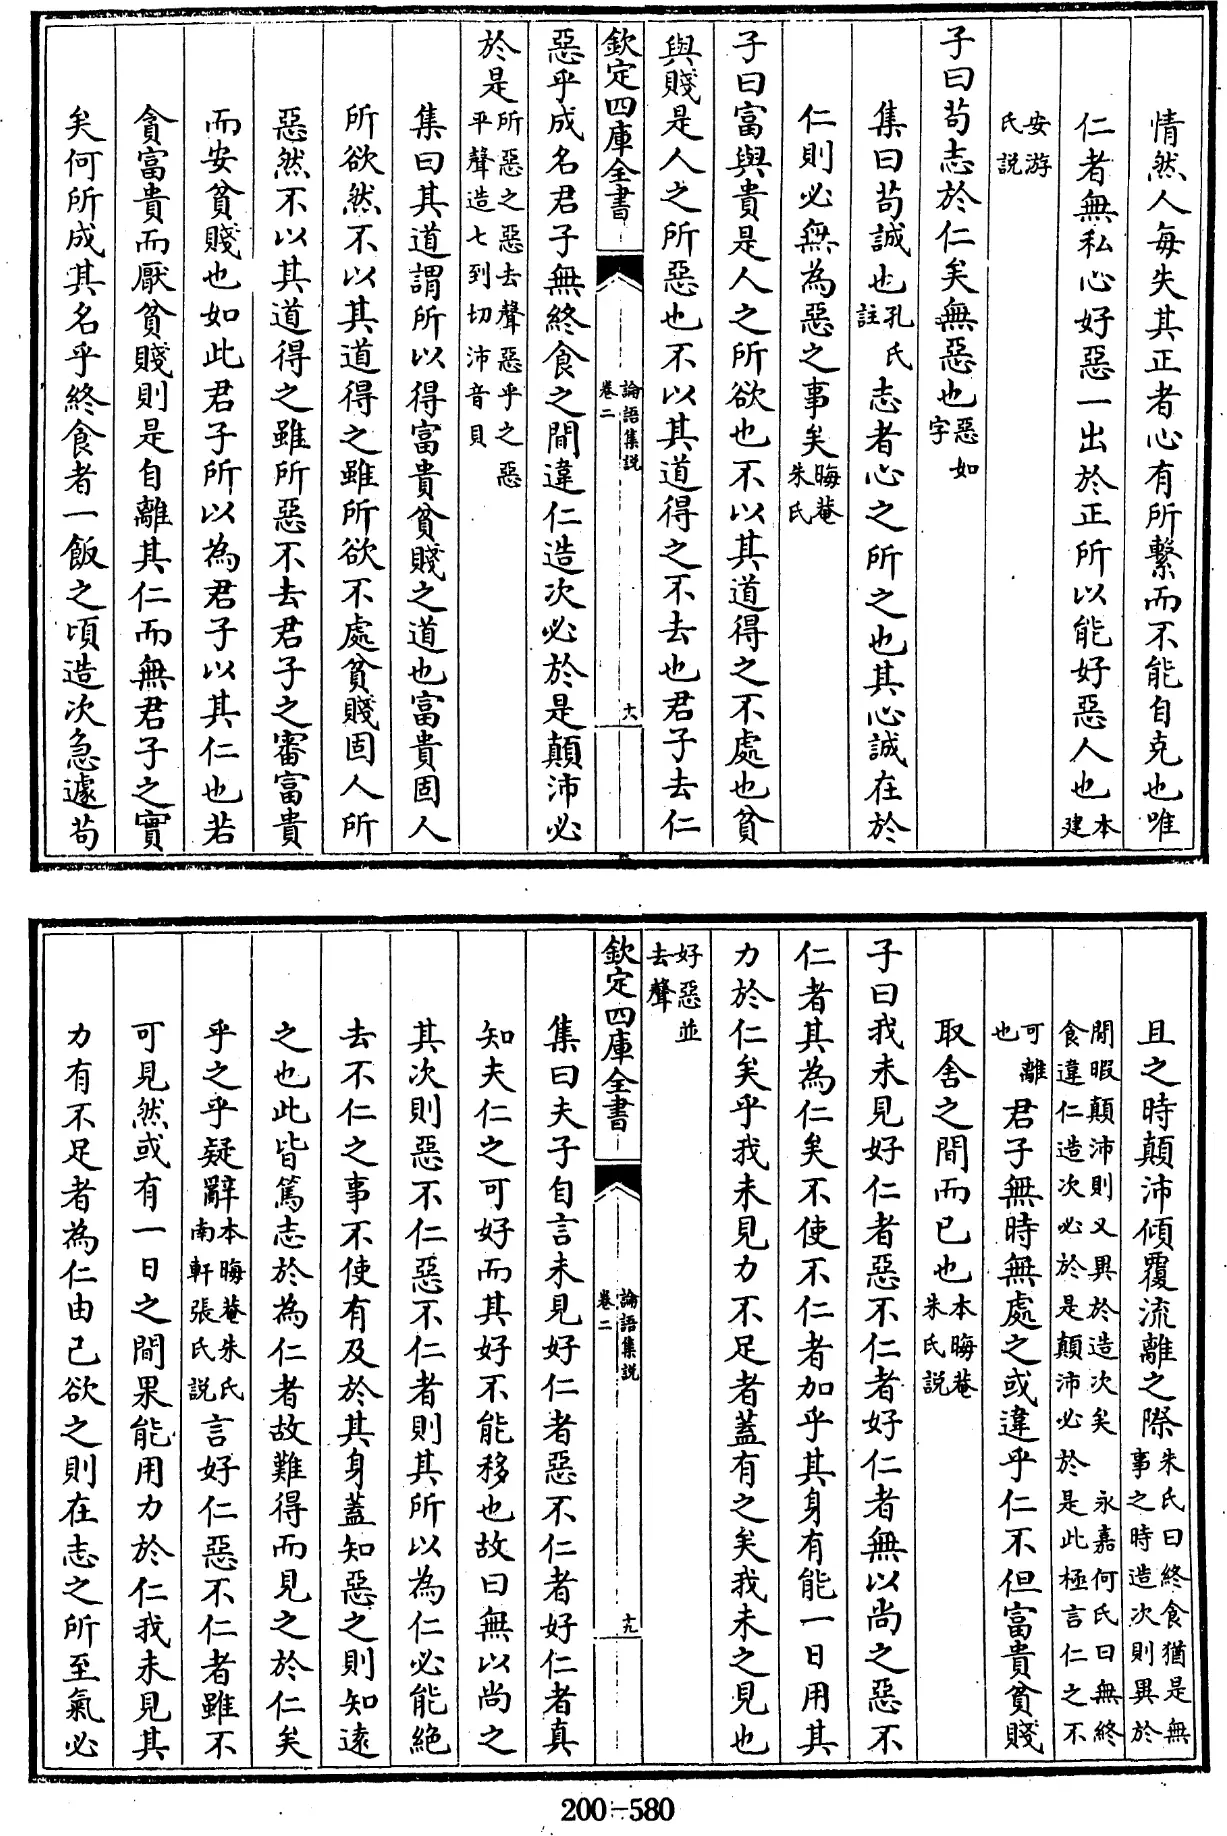 情然人每失其正者心有所繫而不能自克也唯
仁者無私心好惡一出於正所以能好惡人也本建
安游氏説
子曰苟志於仁矣無惡也惡如字
集曰苟誠也孔氏註志者心之所之也其心誠在於
仁則必無為惡之事矣晦菴朱氏
子曰富與貴是人之所欲也不以其道得之不處也貧
與賤是人之所惡也不以其道得之不去也君子去仁
欽定四庫全書
論語集説
卷二
十八
惡乎成名君子無終食之間違仁造次必於是顛沛必
於是所惡之惡去聲惡乎之惡平聲造七到切沛音貝
集曰其道謂所以得富貴貧賤之道也富貴固人
所欲然不以其道得之雖所欲不處貧賤固人所
惡然不以其道得之雖所惡不去君子之審富貴
而安貧賤也如此君子所以為君子以其仁也若
貪富貴而厭貧賤則是自離其仁而無君子之實
矣何所成其名乎終食者一飯之頃造次急遽苟
且之時顛沛傾覆流離之際朱氏曰終食猶是無事之時造次則異於
閒暇顛沛則又異於造次矣 永嘉何氏曰無終食違仁造次必於是顛沛必於是此極言仁之不
可離也君子無時無處之或違乎仁不但富貴貧賤
取舍之間而已也本晦菴朱氏説
子曰我未見好仁者惡不仁者好仁者無以尚之惡不
仁者其為仁矣不使不仁者加乎其身有能一日用其
力於仁矣乎我未見力不足者蓋有之矣我未之見也
好惡並去聲
欽定四庫全書
論語集説
卷二
十九
集曰夫子自言未見好仁者惡不仁者好仁者真
知夫仁之可好而其好不能移也故曰無以尚之
其次則惡不仁惡不仁者則其所以為仁必能絶
去不仁之事不使有及於其身蓋知惡之則知遠
之也此皆篤志於為仁者故難得而見之於仁矣
乎之乎疑辭本晦菴朱氏南軒張氏説言好仁惡不仁者雖不
可見然或有一日之間果能用力於仁我未見其
力有不足者為仁由己欲之則在志之所至氣必
200-580